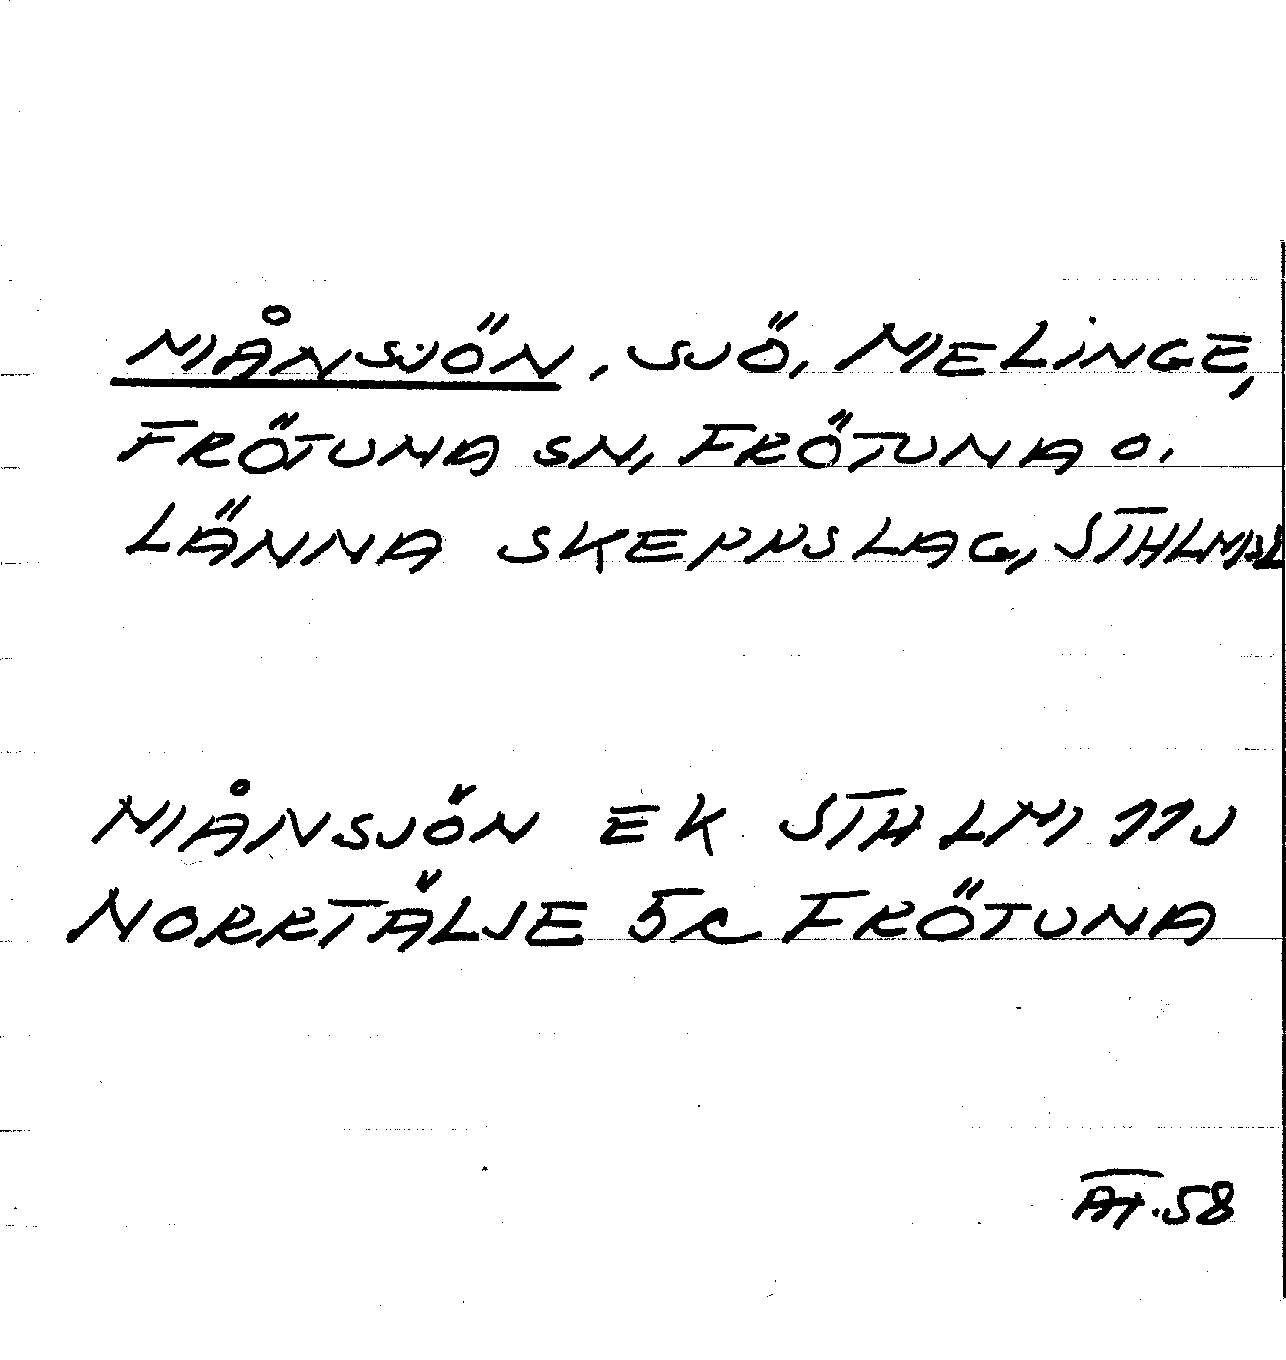 MÅNSJÖN, SJÖ, MELINGE,
FRÖTUNA SN, FRÖTUNA O.
LÄNNA SKEPPSLAG, STHLMSL
MÅNSJÖN EK STHLM 111
NORRTÄLJE 5c FRÖTUNA
AT.58